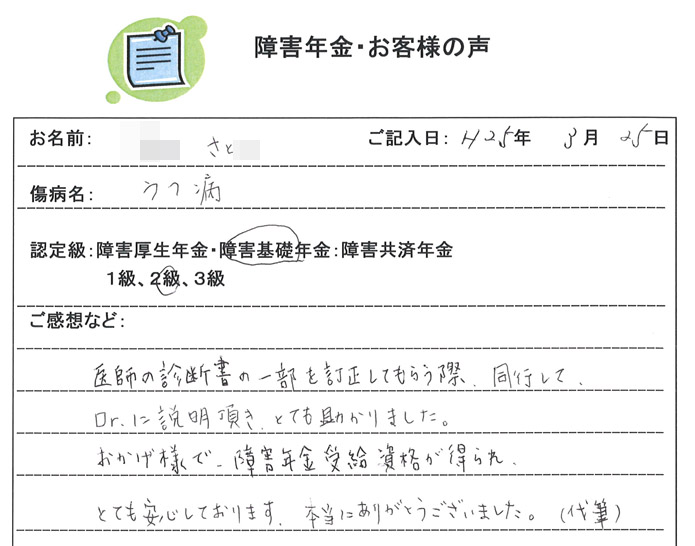 障害年金・お客様の声
お名前: さと ご記入日: H25年 3月 25日
傷病名: うつ病
認定級:障害厚生年金・障害基礎年金:障害共済年金
1級、2級、3級
ご感想など:
医師の診断書の一部を訂正してもらう際、同行して、
Dr.に説明頂き、とても助かりました。
おかげ様で、障害年金受給資格が得られ、
とても安心しております。本当にありがとうございました。(代筆)